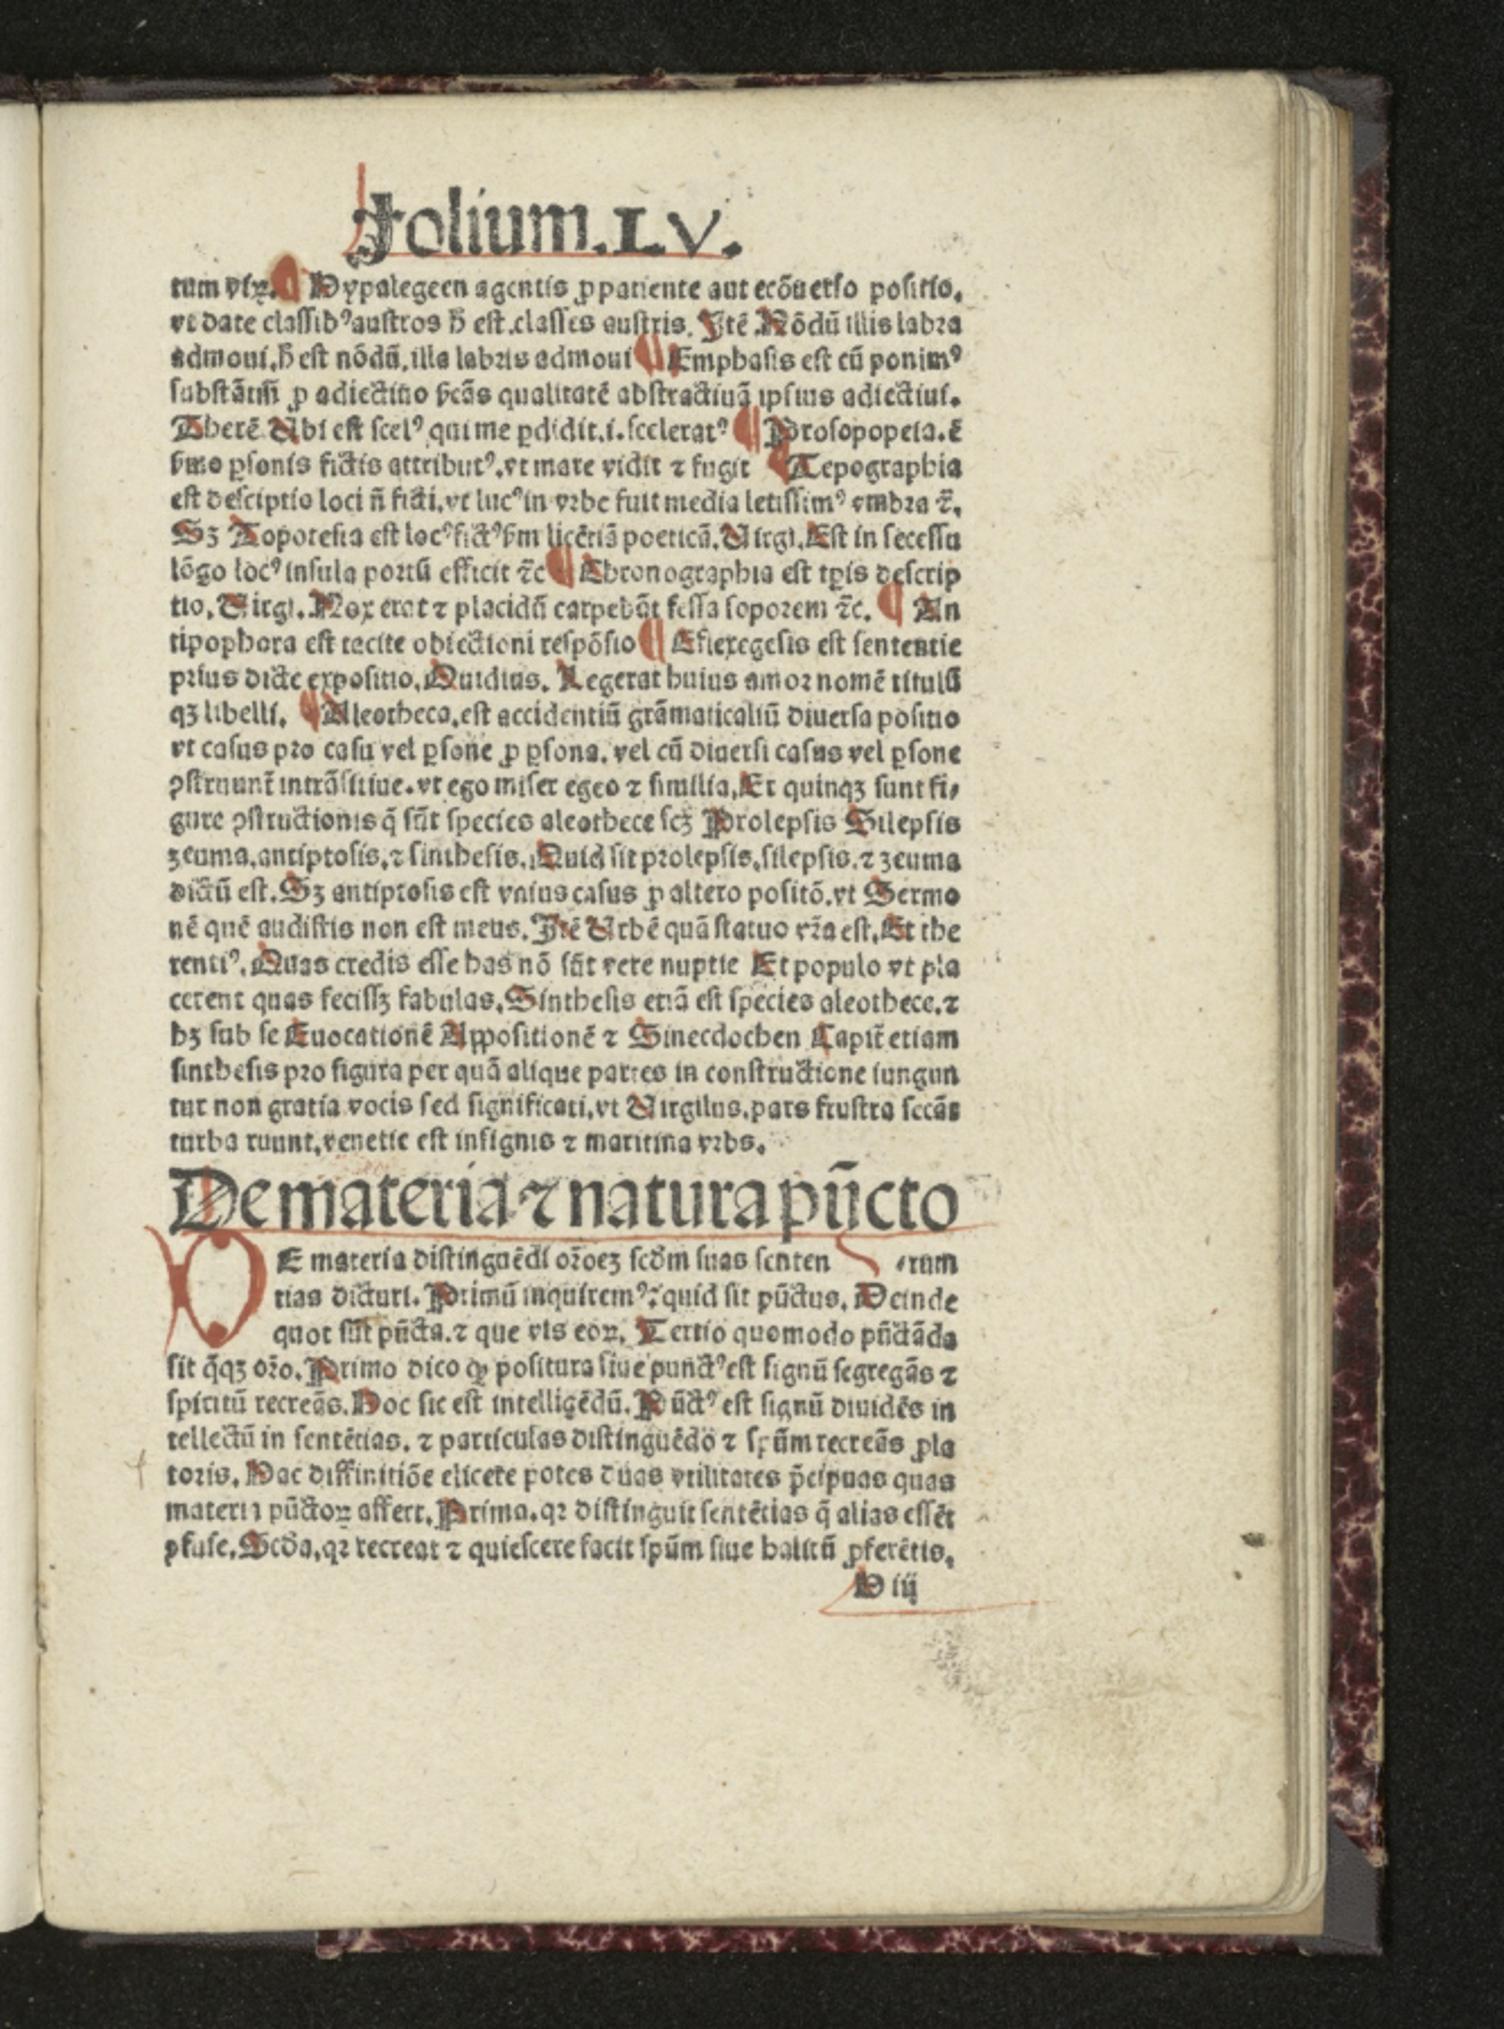 Folium.LV.
tum vix. ¶ Hypalegeen agentis ꝓ patiente aut ecõuerso positio.
vt date classibꝰ austros h̄ est.classes austris. Itē Nōdū illis labra
admoui.h̄ est nōdū.illa labris admoui ¶ Emphasis est cū ponimꝰ
substātiū ꝓ adiectiuo scās qualitatē abstractiuā ipsius adiectiui.
Therē Ubi est scelꝰ qui me ꝑdidit.i.sceleratꝰ ¶ Prosopopeia.ē
ẜmo ꝑsonis fictis attributꝰ.vt mare vidit ⁊ fugit ¶ Tepographia
est desciptio loci ñ ficti.vt lucꝰ in vrbe fuit media letissimꝰ vmbra ⁊̄.
Sꝫ Topotesia est locꝰ fictꝰ ẜm licētiā poeticā.Uirgi.Est in secessu
lōgo locꝰ insula portū efficit ⁊̄c ¶ Chronographia est tp̄is descrip
tio.Uirgi.Nox erat ⁊ placidū carpebāt fessa soporem ⁊̄c. ¶ An
tipophora est tacite obiectioni respōsio ¶ Efiexegesis est sententie
prius dicte expositio.Ouidius. Legerat huius amor nomē titulū
qꝫ libelli. ¶ Aleotheca.est accidentiū grāmaticaliū diuersa positio
vt casus pro casu vel ꝑsone ꝓ ꝑsona.vel cū diuersi casus vel ꝑsone
ꝯstruunt̄ intrāsitiue.vt ego miser egeo ⁊ similia.Et quinqꝫ sunt fi⸗
gure ꝯstructionis q̄ sūt species aleothece scꝫ Prolepsis Silepsis
zeuma.antiptosis.⁊ sinthesis.Quid sit prolepsis.silepsis.⁊ zeuma
dictū est.Sꝫ antiptosis est vnius casus ꝓ altero positō.vt Sermo
nē quē audistis non est meus.Itē Urbē quā statuo vr̄a est.Et the
rentiꝰ.Quas credis esse has nō sūt vere nuptie Et populo vt pla
cerent quas fecissꝫ fabulas.Sinthesis etiā est species aleothece.⁊
hꝫ sub se Euocationē Appositionē ⁊ Sinecdochen Capit̄ etiam
sinthesis pro figura per quā alique partes in constructione iungun
tur non gratia vocis sed significati.vt Uirgilus.pars frustra secāt
turba ruunt.venetie est insignis ⁊ maritina vrbs.
De materia ⁊ natura pūcto
DE materia distinguēdi or̄oeꝫ scd̄m suas senten ⸗rum
tias dicturi. Primū inquiremꝰ: quid sit pūctus. Deinde
quot sūt pūcta.⁊ que vis eoꝝ. Tertio quomodo pūctāda
sit q̄qꝫ or̄o. Primo dico ꝙ positura siue punctꝰ est signū segregās ⁊
spiritū recreās.Hoc sic est intelligēdū.Pūctꝰ est signū diuidēs in
tellectū in sentētias.⁊ particulas distinguēdo ⁊ sp̄um recreās ꝓla
toris.Hac diffinitiōe elicere potes duas vtilitates p̄cipuas quas
materia pūctoꝝ affert.Prima.qꝛ distinguit sentētias q̄ alias essēt
ꝯfuse.Scd̄a.qꝛ recreat ⁊ quiescere facit sp̄um siue halitū ꝓferētis.
H iij